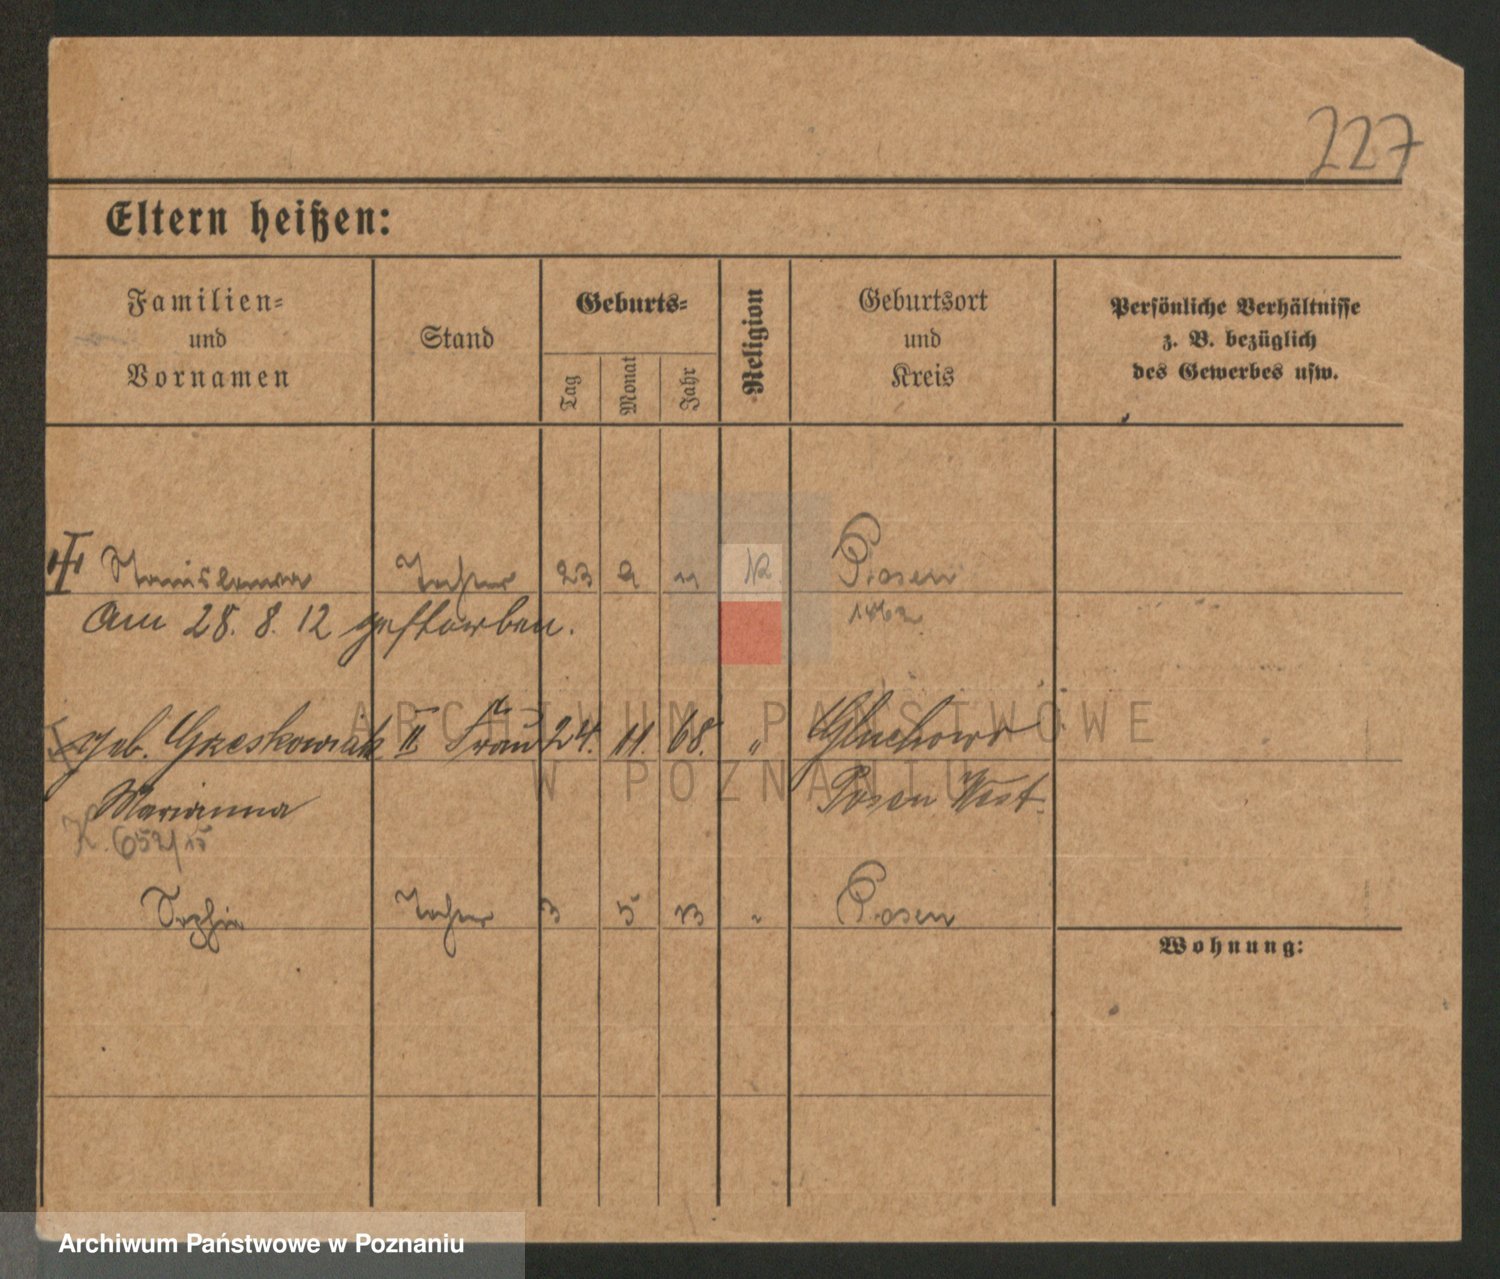 227
Eltern heißen:
Familien=
und
Vornamen
Stand
Geburts=
Tag
Monat
Jahr
Religion
Geburtsort
und
Kreis
Persönliche Verhältnisse
z. B. bezüglich
des Gewerbes usw.
Stanislawa Tochter 23 9 11 K Posen
Am 28. 8. 12 gestorben.
geb. Grzeskowiak II Frau 24. 11. 68. " Gluchowo
Marianna Posen West.
K. 652/15
Sophie Tochter 3 5 13 " Posen
Wohnung:
ARCHIWUM PAŃSTWOWE
W POZNANIU
Archiwum Państwowe w Poznaniu